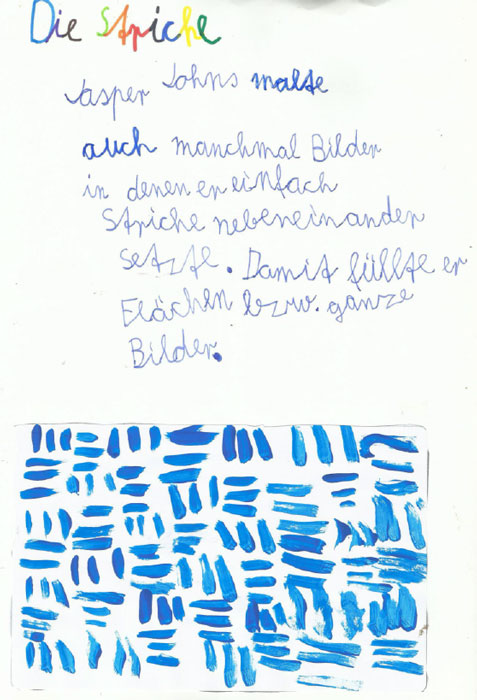 Die Striche
Jasper Johns malte
auch manchmal Bilder
in denen er einfach
Striche nebeneinander
setzte. Damit füllte er
Flächen bzw. ganze
Bilder.